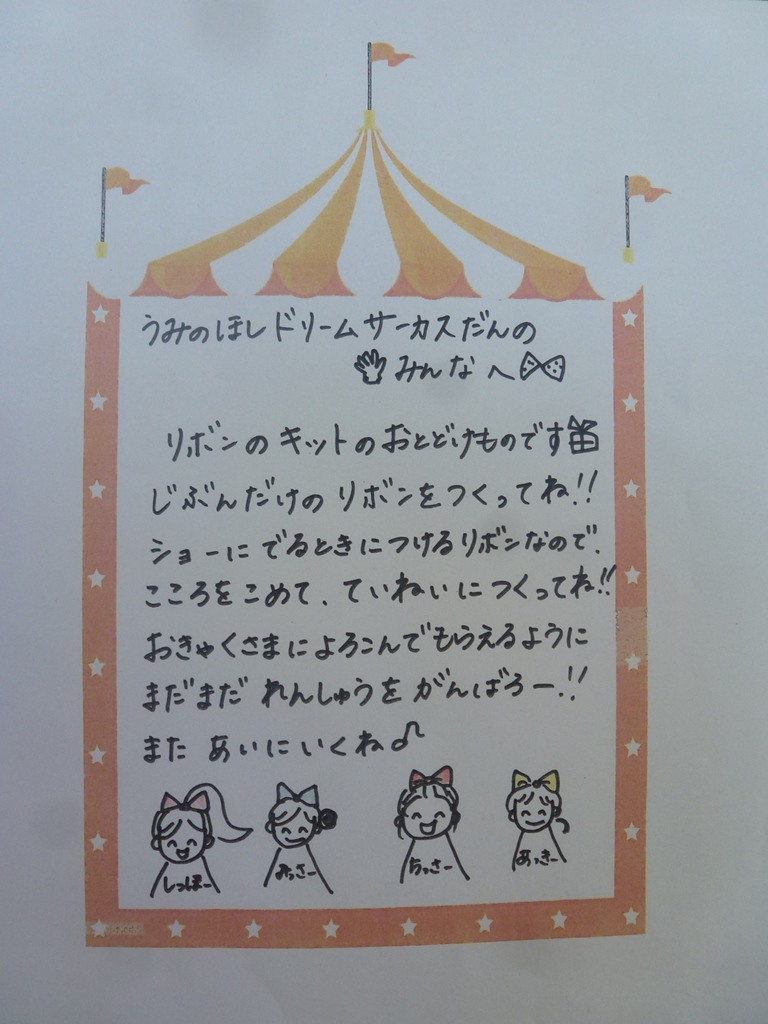 うみのほしドリームサーカスだんの
みんなへ
リボンのキットのおとどけものです
じぶんだけのリボンをつくってね!!
ショーにでるときにつけるリボンなので、
こころをこめて、ていねいにつくってね!!
おきゃくさまによろこんでもらえるように
まだまだ れんしゅうを がんばろー!!
また あいにいくね♪
しっぽー みっさー ちっさー あっきー